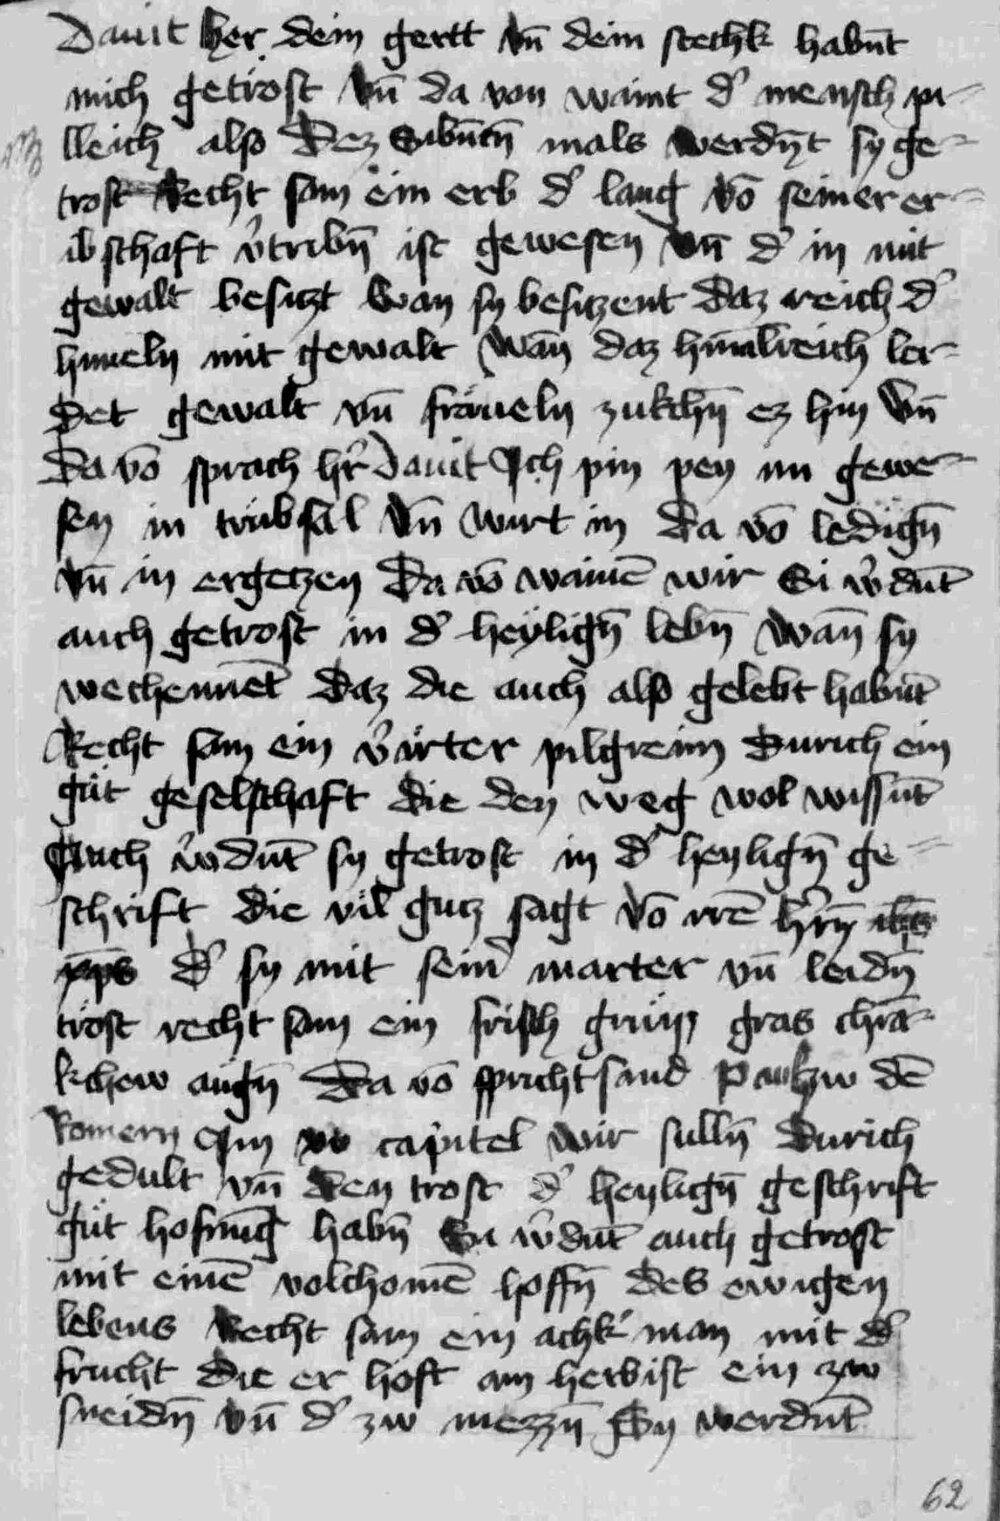 Dauit her dein gertt vn̄ dein stechk habn̄t
mich getröst vn̄ da von waint d' mensch pi-
lleich also Dez Sibn̄tn̄ mals werdn̄t sy ge-
trost Recht sam ein erb d' lang vō seiner er-
ibschaft v'tribn̄ ist gewesen vn̄ d' in mit
gewalt besitzt Wan sy besitzent daz reich d'
himeln mit gewalt Wan̄ daz himl̄reich lei-
det gewalt vn̄ fräueln zukchn̄ ez hin Vn̄
da vō sprach h'r Dauit Ich pin pey im gewe-
sen in trübsal Vn̄ wirt in da vō ledign̄
vn̄ in ergetzen Da vō wainē wir Si w'dn̄t
auch getrost in d' heylign̄ lebn̄ Wan̄ sy
wechennēt daz die auch also gelebt habn̄t
Recht sam ein v'irter pilgreim durich ein
güt geselschaft die den weg wol wissn̄t
Auch w'dn̄t sy getrost in d' heylign̄ ge-
schrift die vil gutz sagt vō irē h'rn̄ ih̄s
xp̄s d' sy mit sein' marter vn̄ leidn̄
tröst recht sam ein frisch grün gras chrā-
kchew augn̄ Da vō spricht sand Paul zw dē
Romern Im xv capitel wir sulln̄ durich
gedult vn̄ den trost d' heylign̄ geschrift
güt hofnūg habn̄ Si w'dn̄t auch getrost
mit einē volchomē hoffn̄ des ewigen
lebens Recht sam ein achk'man mit d'
frucht die er hoft am herbist ein zw
sneidn̄ vn̄ d' zw niezzn̄ Sy werdn̄t
62